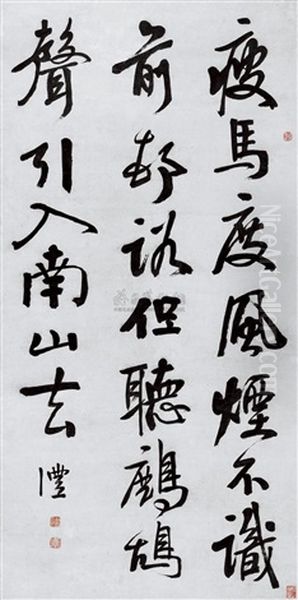 瘦馬度風煙不識
前邨路但聽鷓鴣
聲引入南山去
澧